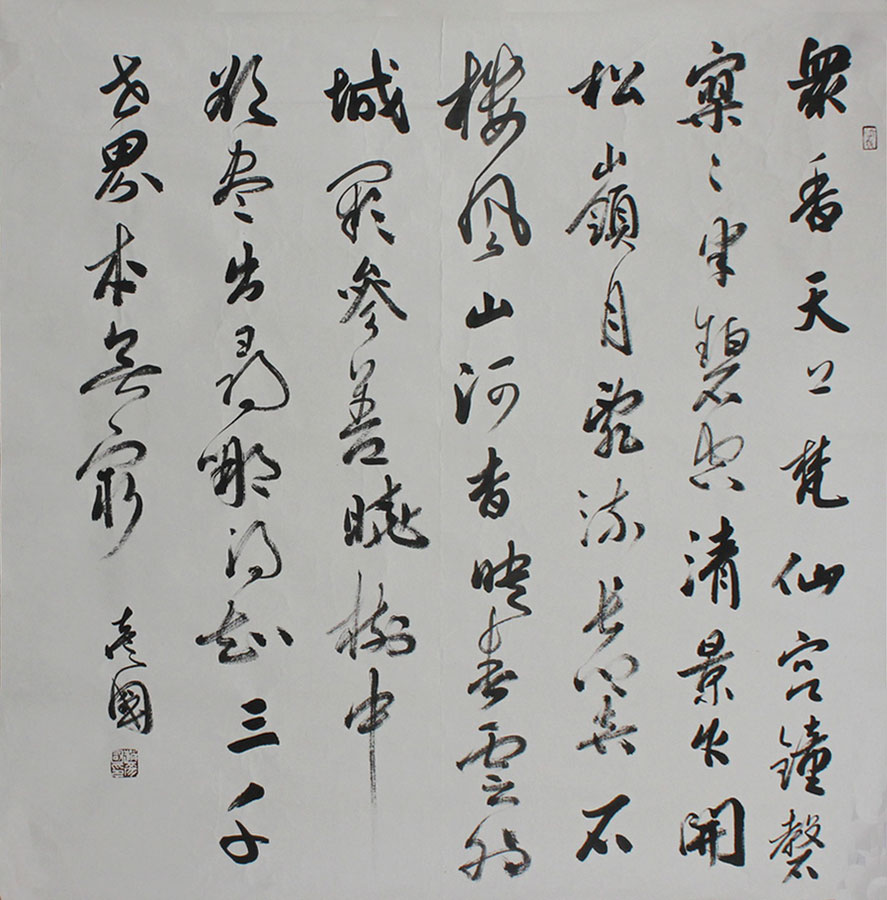 眾香天上梵仙宮鐘磬
寥々半碧空清景乍開
松嶺月亂流長響石
樓風山河杳映春雲外
城闕參差曉樹中
欲盡出尋那得知三千
世界本無窮
國